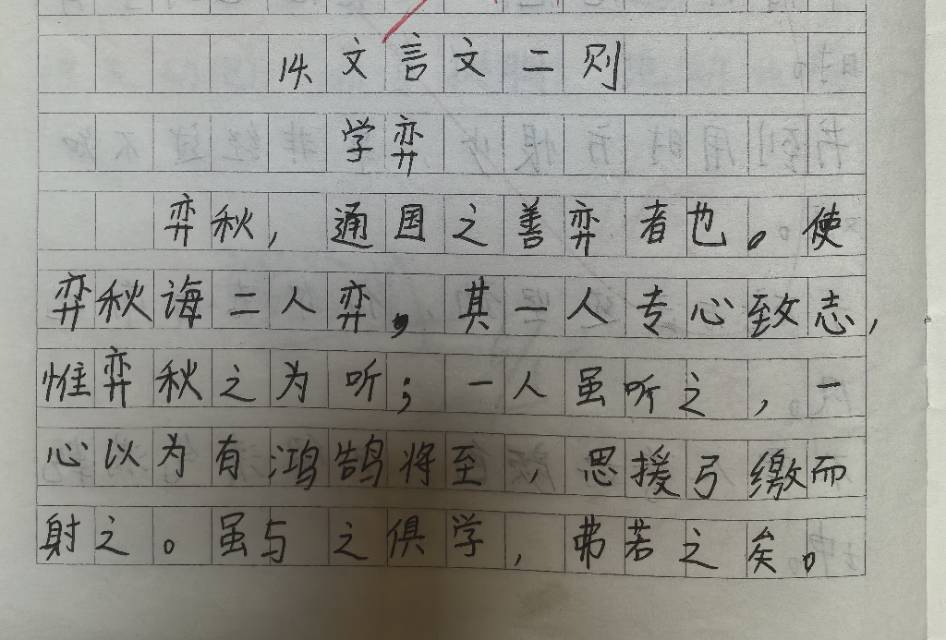 14、文言文二则
学弈
弈秋，通国之善弈者也。使
弈秋诲二人弈，其一人专心致志，
惟弈秋之为听；一人虽听之，一
心以为有鸿鹄将至，思援弓缴而
射之。虽与之俱学，弗若之矣。